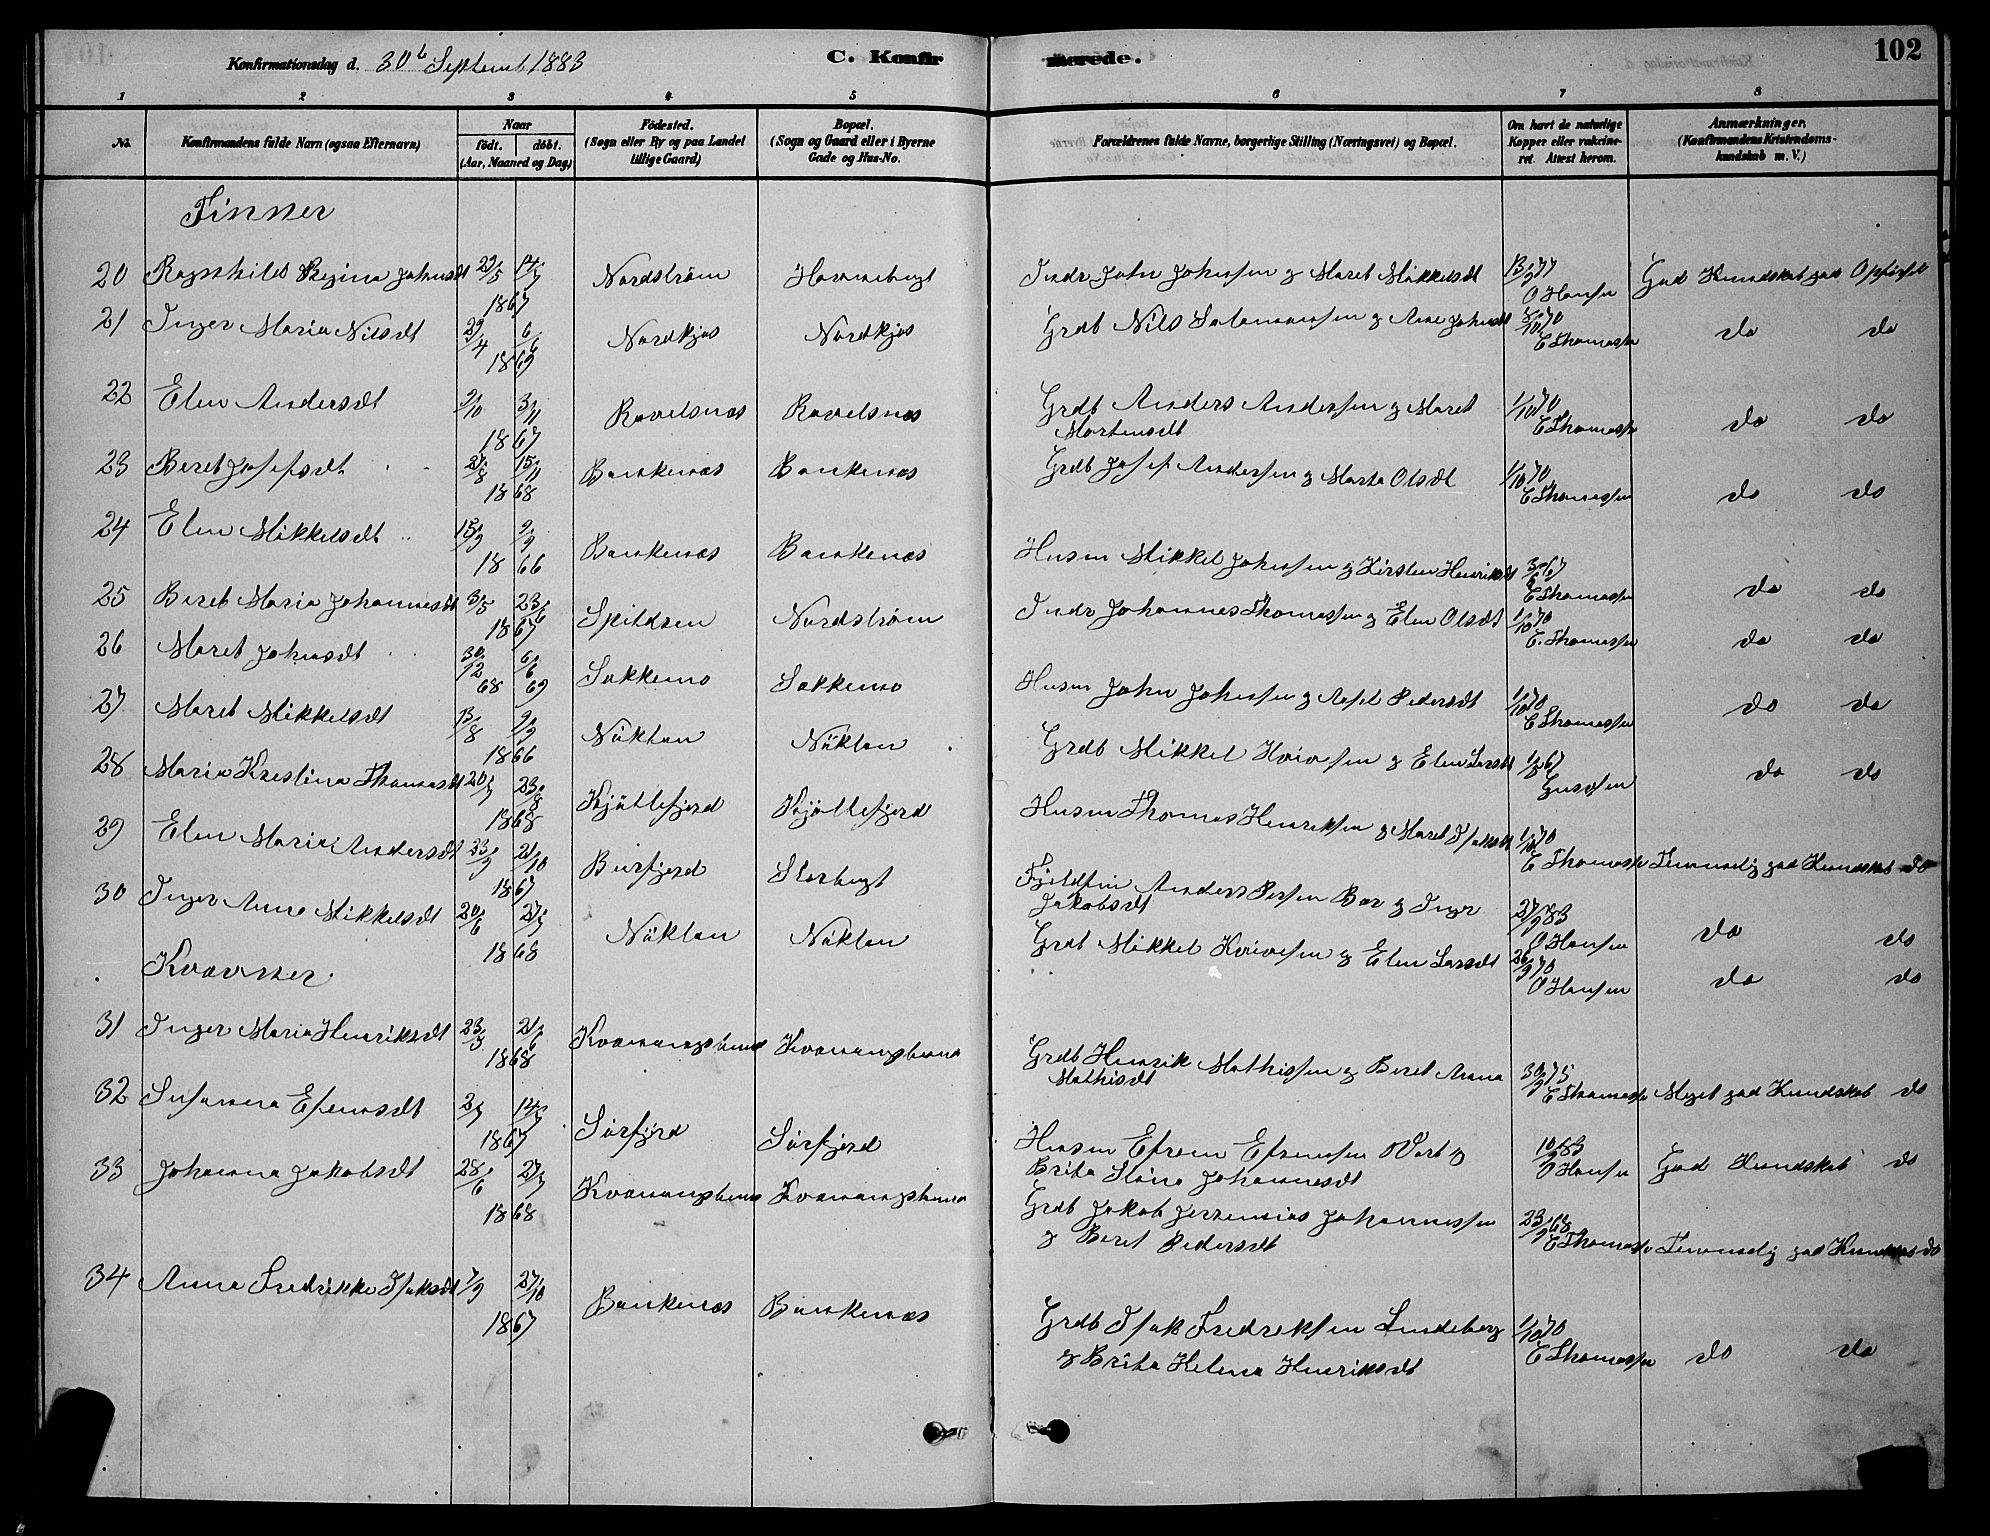 102
Konfirmationsdag d. 30t Septemb 1883
C. Konfirmerede.
1 2 3 4 5 6 7 8
No.
Konfirmandens fulde Navn (ogsaa Efternavn)
Naar
født. døbt.
(Aar, Maaned og Dag)
Fødested.
(Sogn eller By og paa Landet
tillige Gaard)
Bopæl.
(Sogn og Gaard eller i Byerne
Gade og Hus-No.
Forældrenes fulde Navne, borgerlige Stilling (Næringsvei) og Bopæl.
Om havt de naturlige
Kopper eller vakcine-
ret. Attest herom.
Anmærkninger.
(Konfirmandens Kristendoms-
kundskab m. V.)
Finner
20 Ragnhild Regina Johnsdt 22/5 14/7 1867 Nordstrøm Havnebugt Indr John Johnsen g Maret Mikkelsdt 13/9 77 O Hansen God Kundskab god Opførsel
21 Inger Maria Nilsdt 29/4 6/6 1869 Nordkjos Nordkjos Grdb Nils Salamonsen g Ane Johnsdt 8/10 70 E Thomassen do do
22 Elen Andersdt 2/10 3/11 1867 Ravelsnæs Ravelsnæs Grdb Anders Andersen g Maret
Mortensdt 1/10 70 E Thomassen do do
23 Beret Josefsdt 27/8 15/11 1868 Bankenæs Bankenæs Grdb Josef Andersen g Marta Olsdt 1/10 70 E Thomassen do do
24 Elen Mikkelsdt 15/3 9/9 1866 Bankenæs Bankenæs Husm Mikkel Johnsen g Kirsten Henriksdt 3/6 67 E Thomassen do do
25 Beret Maria Johannesdt 3/5 23/6 1867 Spildren Nordstrøm Indr Johannes Thomassen g Elen Olsdt 1/10 70 E. Thomassen do do
26 Maret Johnsdt 30/12 68 6/6 69 Sakkemo Sakkemo Husm John Johnsen g Pedersdt 1/10 70 E Thomassen do do
27 Maret Mikkelsdt 13/8 9/9 1866 Nöklan Nöklan Grdb Mikkel Hoivesen g Elen Larsdt 1/8 67 do do
28 Maria Kristina Thomasdt 20/7 23/8 1868 Kjöllefjord Kjöllefjord Husm Thomas Henriksen g Maret Isaksdt 1/10 70 E Thomassen Temmelig god Kundskab do
29 Elen Maria Andersdt 23/9 21/10 1867 Burfjord Storbugt Fjeldfin Anders Persen Bær g Inger
Jakobsdt 27/9 83 O Hansen do do
30 Inger Anna Mikkelsdt 20/6 27/7 1868 Nöklan Nöklan Grdb Mikkel Hoivesen g Elen Larsdt 26/9 70 O Hansen do do
Kvæner
31 Inger Maria Henriksdt 23/3 21/6 1868 Kvænangsbund Kvænangsbund Grdb Henrik Mathissen g Beret Anna
Mathisdt 30/9 75 E Thomassen Meget god Kundskab do
32 Susanna Efremsdt 2/7 14/7 1867 Sörfjord Sörfjord Husm Efrem Efremsen Wart g
Brita Stina Johannesdt 10/8 83 O Hansen God Kundskab do
33 Johanna Jakobsdt 28/6 27/7 1868 Kvænangsbund Kvænangsbund Grdb Jakob Jeremias Johannessen
g Beret Pedersdt 23/9 68 E Thomassen Temmelig god Kundskab do
34 Anna Fredrikke Isaksdt 7/9 27/10 1867 Bankenæs Bankenæs Grdb Isak Fredriksen Lindeberg
g Brita Helena Henriksdt 1/10 70 E Thomassen do do